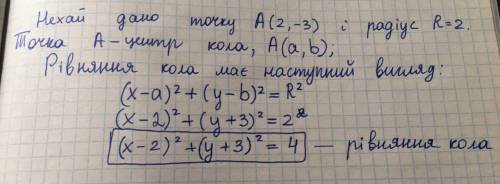 Нехай дано точку A(2,-3) і радіус R=2.
Точка A-центр кола, A(a,b);
Рівняння кола має наступний вигляд:
(x-a)²+(y-b)²=R²
(x-2)²+(y+3)²=2²
(x-2)²+(y+3)²=4 — рівняння кола